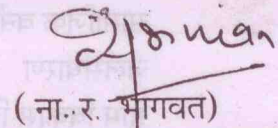 ( ना. र. भागवत)